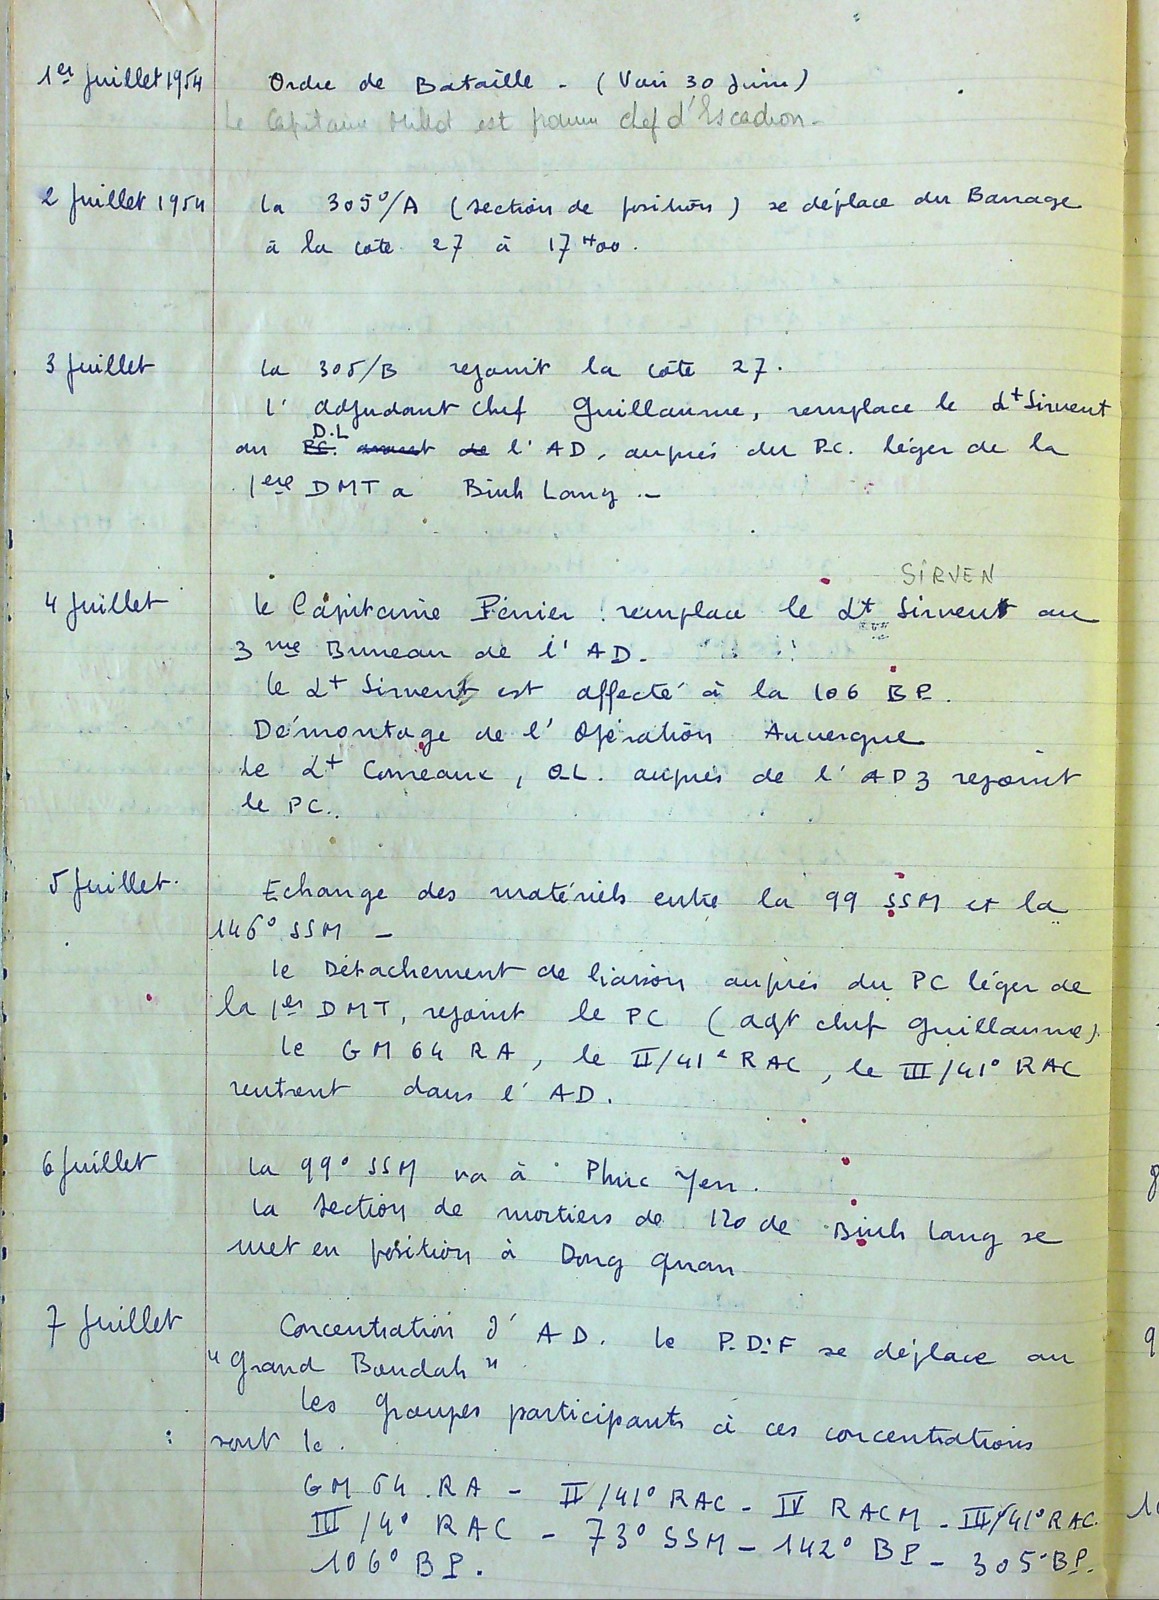 1er Juillet 1954 Ordre de Bataille - (Voir 30 Juin)
Le Capitaine est promu chef d'Escadron.
2 Juillet 1954 La 305°/A (section de position) se déplace du Barrage
à la côte 27 à 17H00.
3 Juillet La 305/B rejoint la côte 27.
L'adjudant chef Guillaume, remplace le Lt Sirvent
D.L
au PC. avant de l'AD. auprès du P.C. léger de la
1ere DMT a Binh Lang -
SIRVEN
4 Juillet le Capitaine Périer remplace le Lt Sirvent au
3me Bureau de l'AD.
le Lt Sirvent est affecté à la 106 BP.
Démontage de l'Opération Auvergne
Le Lt Comeaux, OL. auprès de l'AD3 rejoint
le PC.
5 Juillet. Echange des matériels entre la 99 SSM et la
146° SSM -
le Détachement de liaison auprès du PC léger de
la 1er DMT, rejoint le PC (adjt chef Guillaume).
Le GM 64 RA, le II/41e RAC, le III/41° RAC
rentrent dans l'AD.
6 Juillet La 99° SSM va à Phuc Yen.
La section de mortiers de 120 de Binh Lang se
met en position à Dong Quan
7 Juillet Concentration d'AD. le P.D.F se déplace au
"Grand Bouddah"
Les Groupes participants à ces concentrations
sont le :
GM 64 RA - II/41° RAC - IV RACM - III/41° RAC.
III/4° RAC - 73° SSM - 142° BP - 305° BP.
106° BP.
9